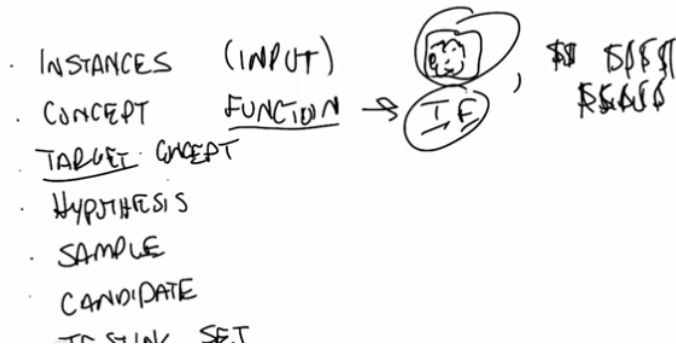 INSTANCES (INPUT)
CONCEPT FUNCTION → T F
TARGET CONCEPT
HYPOTHESIS
SAMPLE
CANDIDATE
TESTING SET